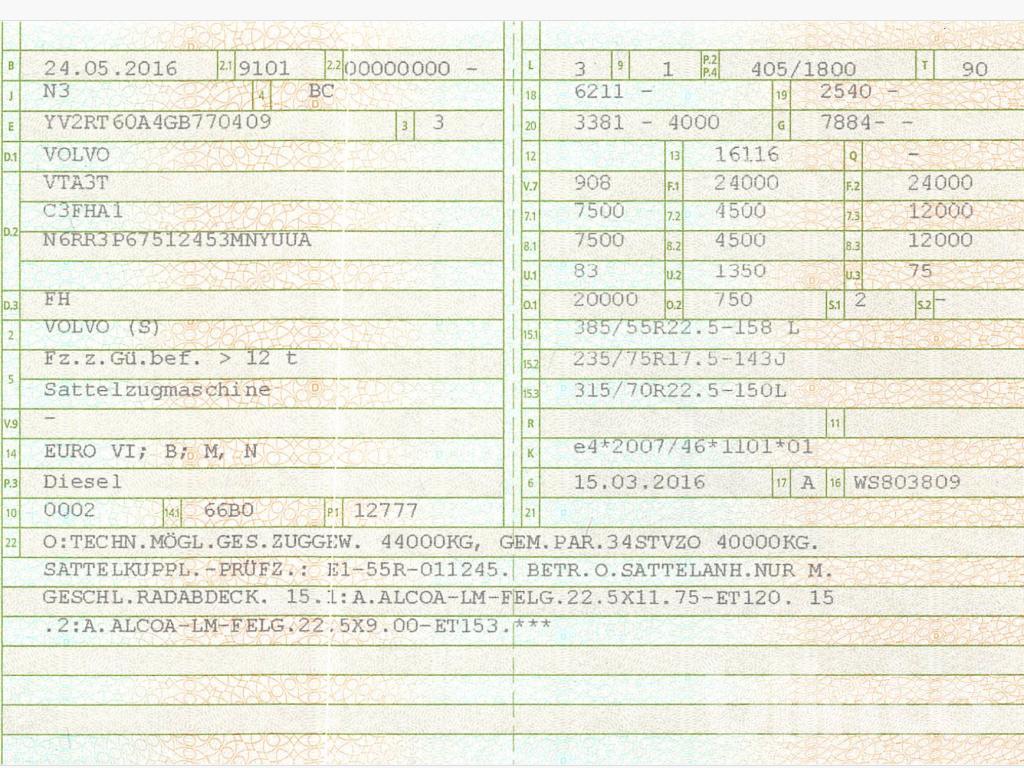 B 24.05.2016 2.1 9101 2.2 00000000 -
J N3 4 BC
E YV2RT60A4GB770409 3 3
D.1 VOLVO
VTA3T
D.2 C3FHA1
N6RR3P67512453MNYUUA
D.3 FH
2 VOLVO (S)
Fz.z.Gü.bef. > 12 t
5 Sattelzugmaschine
V.9 -
14 EURO VI; B; M, N
P.3 Diesel
10 0002 14.1 66B0 P.1 12777
L 3 9 1 P.2 P.4 405/1800 T 90
18 6211 - 19 2540 -
20 3381 - 4000 G 7884- -
12 13 16116 Q -
V.7 908 F.1 24000 F.2 24000
7.1 7500 7.2 4500 7.3 12000
8.1 7500 8.2 4500 8.3 12000
U.1 83 U.2 1350 U.3 75
O.1 20000 O.2 750 S.1 2 S.2 -
15.1 385/55R22.5-158 L
15.2 235/75R17.5-143J
15.3 315/70R22.5-150L
R 11
K e4*2007/46*1101*01
6 15.03.2016 17 A 16 WS803809
21
22 O:TECHN.MÖGL.GES.ZUGGEW. 44000KG, GEM.PAR.34STVZO 40000KG.
SATTELKUPPL.-PRÜFZ.: E1-55R-011245. BETR.O.SATTELANH.NUR M.
GESCHL.RADABDECK. 15.1:A.ALCOA-LM-FELG.22.5X11.75-ET120. 15
.2:A.ALCOA-LM-FELG.22.5X9.00-ET153.***